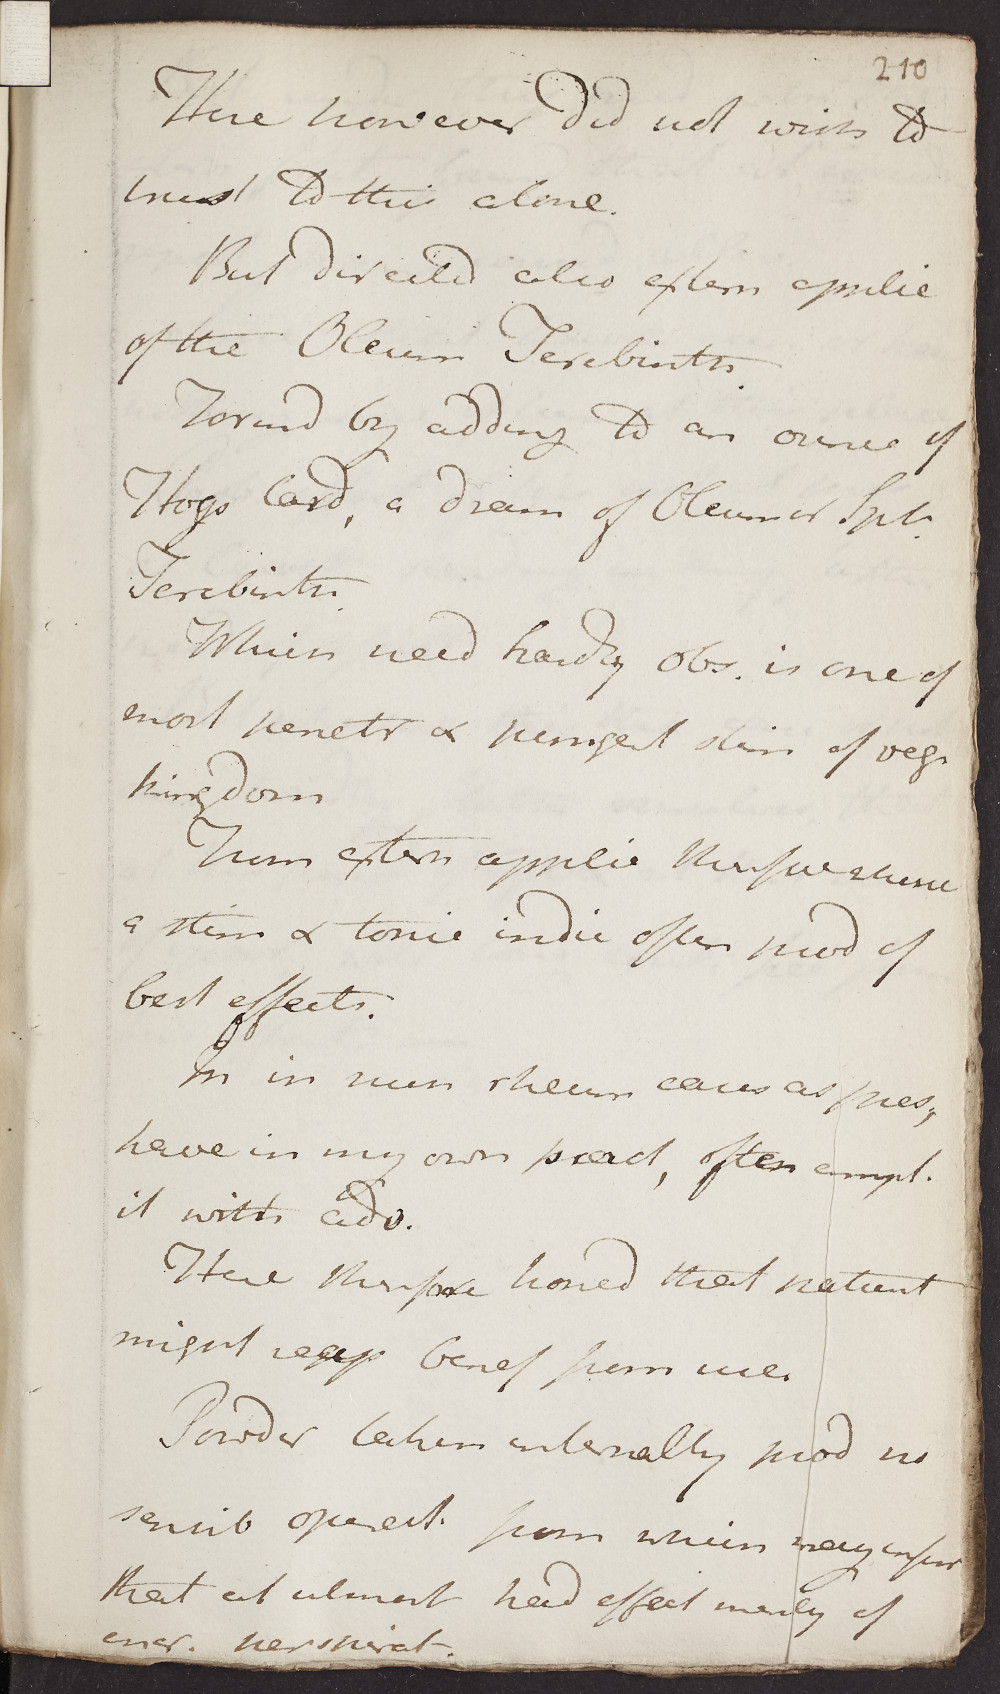 210
Here however did not wish to
trust to this alone.
But directed also extern applic
of the Oleum Terebinth.
Formd by adding to an ounce of
Hogs lard, a dram of Oleum or Spt.
Terebinth.
Which need hardly obs. is one of
most penetr & pungent stim of veg.
kingdom
From extern applic therefore where
a stim & tonic indic often prod of
best effects.
In rheum cases as pres,
have in my own pract, often empl.
it with adv.
Here therefore hoped that patient
might reap benef from use.
Powder taken internally prod no
sensib operat. from which may infer
that at utmost had effect merely of
incr. perspirat.